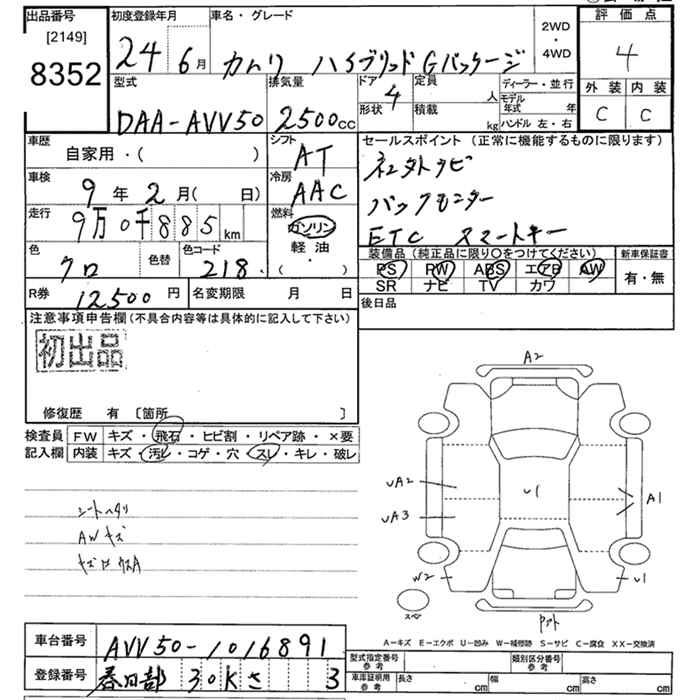 出品番号 初度登録年月 車名・グレード 評価点
[2149]
8352
24 6月 カムリ ハイブリッド Gパッケージ 2WD ・ 4WD 4
型式 排気量 ドア 定員 人 ディーラー・並行 外装 内装
DAA-AVV50 2500cc 4 形状 積載 kg モデル年式 年 ハンドル 左・右 C C
車歴 自家用・( ) シフト AT セールスポイント(正常に機能するものに限ります)
車検 9年2月( 日) 冷房 AAC
バックモニター
走行 9万0千885km 燃料 ガソリン 軽油 ・( )
ETC スマートキー
色 クロ 色替 色コード 218
装備品(純正品に限り○をつけてください) 新車保証書
PS PW ABS エアB AW 有・無
SR ナビ TV カワ
R券 12500円 名変期限 月 日 後日品
注意事項申告欄(不具合内容等は具体的に記入して下さい)
初出品
修復歴 有 〔箇所 〕
検査員 FW キズ・飛石・ヒビ割・リペア跡・×要
記入欄 内装 キズ・汚レ・コゲ・穴・スレ・キレ・破レ
A2
UA2 U1 A1
UA3
W2 U1
スペア
シートヘタリ
AWキズ
A-キズ E-エクボ U-凹み W-補修跡 S-サビ C-腐食 XX-交換済
車台番号 AVV50-1016891
型式指定番号 参考 類別区分番号 参考
登録番号 春日部 30K さ 3
車庫証明用 参考 長さ cm 幅 cm 高さ cm